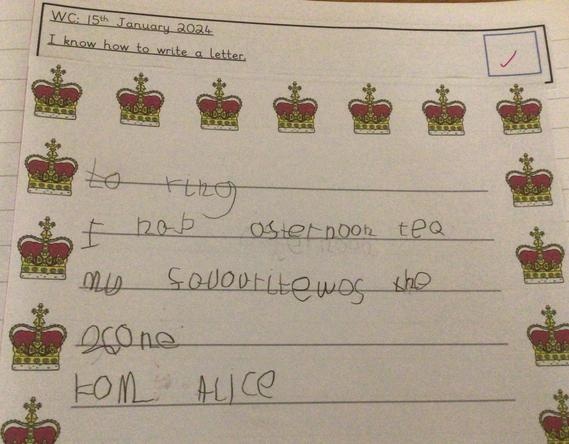 WC: 15th January 2024
I know how to write a letter.
to ring
I hab asternoon tea
my favourite wos the
scone
FOM ALICE